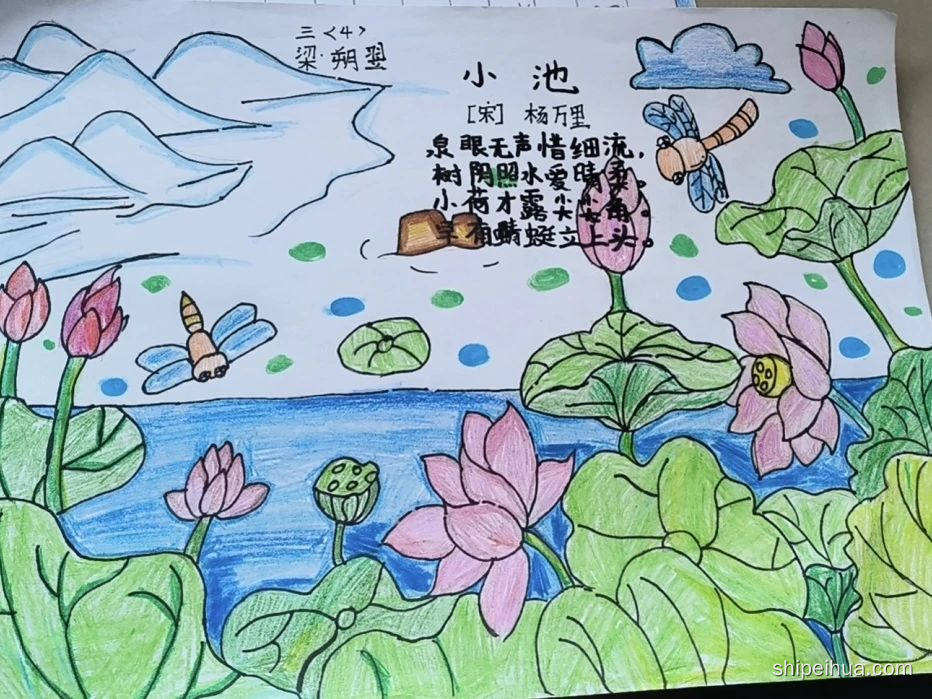 三〈4〉
梁朔翌
小池
[宋] 杨万里
泉眼无声惜细流，
树阴照水爱晴柔。
小荷才露尖尖角。
早有蜻蜓立上头。
shipeihua.com